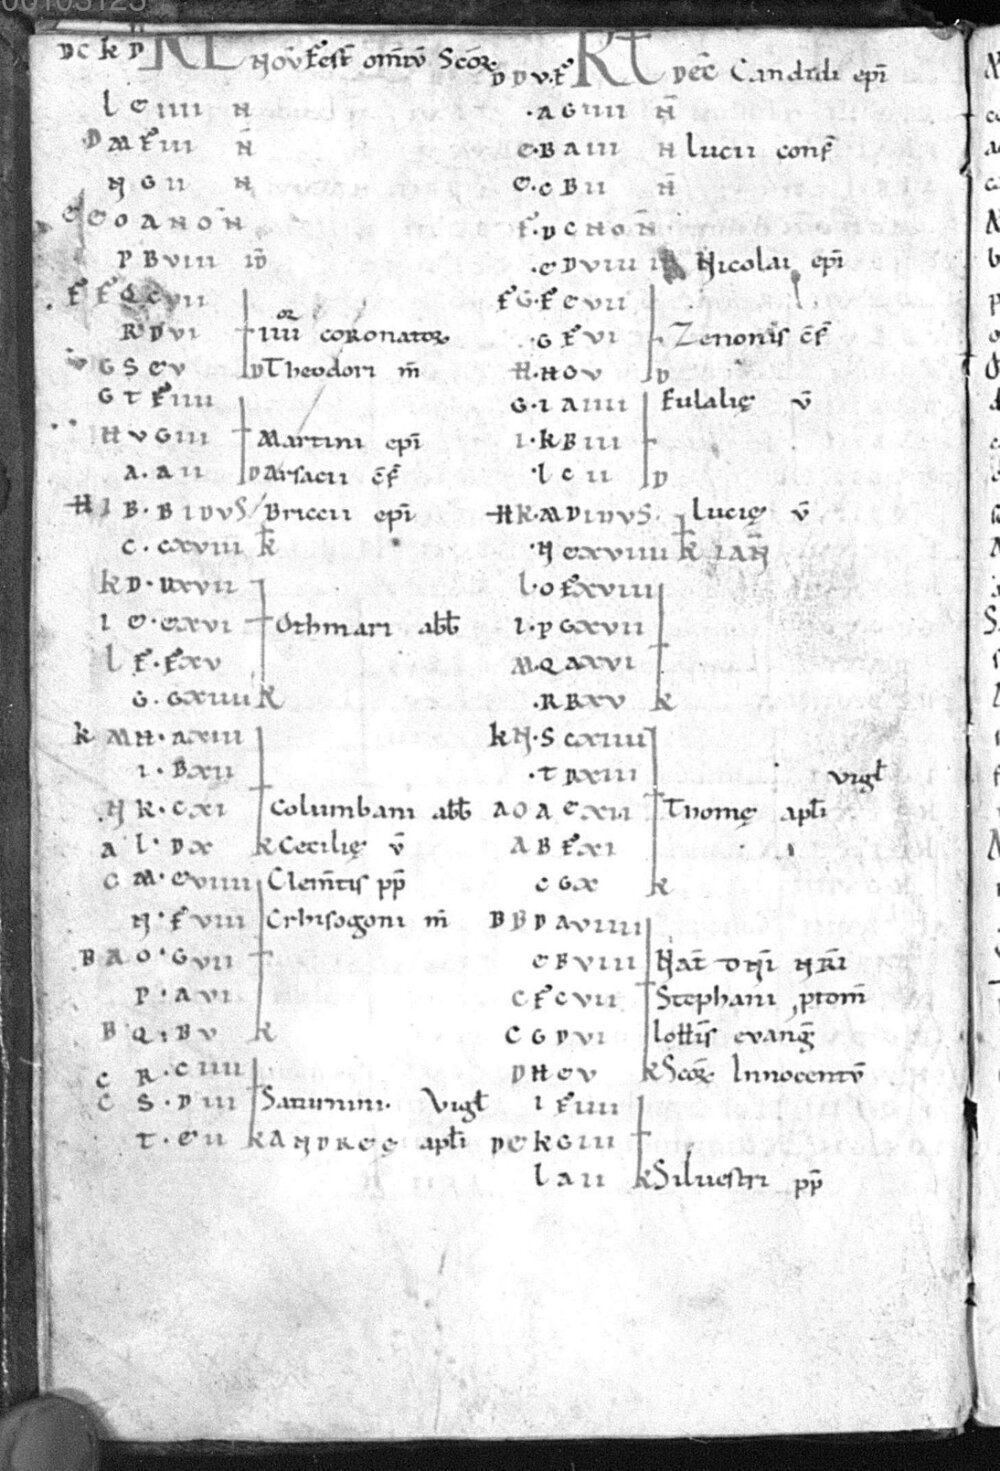 00103123
D C K D KL NOṼ Fest om̄iv̄ Scōꝝ
l E IIII N̄
D M F III N̄
N G II N̄
E E O A NOÑ
P B VIII ID̄
F F Q C VII
R D VI IIII or coronatoꝝ
G S E V D Theodori m̄
G T F IIII
H V G III Martini epī
A. A II D Arsacii c̄f
H I B. B IDVS Briccii epī
C. C XVIII k̄
K D. D XVII
I E. E XVI Othmari abb̄
l F. F XV
G. G XIIII K
K M H. A XIII
I. B XII
N K. C XI Columbani abb̄
A l. D X K Cecilię v̄
C M. E VIIII Clem̄tis pp̄
N. F VIII Crhisogoni m̄
B A O. G VII
P. A VI
B Q. B V K
C R. C IIII
C S. D III Saturnini. Vigł
T. E II K ANDREE apłi
D D V. F KL DEC̄ Candidi epī
. A G IIII N̄
E. B A III N Lucii conf̄
E. C B II N̄
F. D C NOÑ
. E D VIII ID̄ Nicolai epī
F G. F E VII
. G F VI Zenonis c̄f
H. H G V D
G. I A IIII Eulalię v̄
I. K B III
. l C II D
H K. M D IDVS. Lucię v̄
. N E XVIIII k̄ IAN̄
l. O F XVIII
I. P G XVII
M. Q A XVI
. R B XV K
K N. S C XIIII
. T D XIII vigł
A O A E XII Thomę apłi
A B F XI
C G X K
B B D A VIIII
E B VIII Nat̄ DN̄I NR̄I
C F C VII Stephani ptom̄
C G D VI Ioh̄is evanḡ
D H E V K Scōꝝ Innocentv̄
I F IIII
D E K G III
l A II K Siluestri pp̄